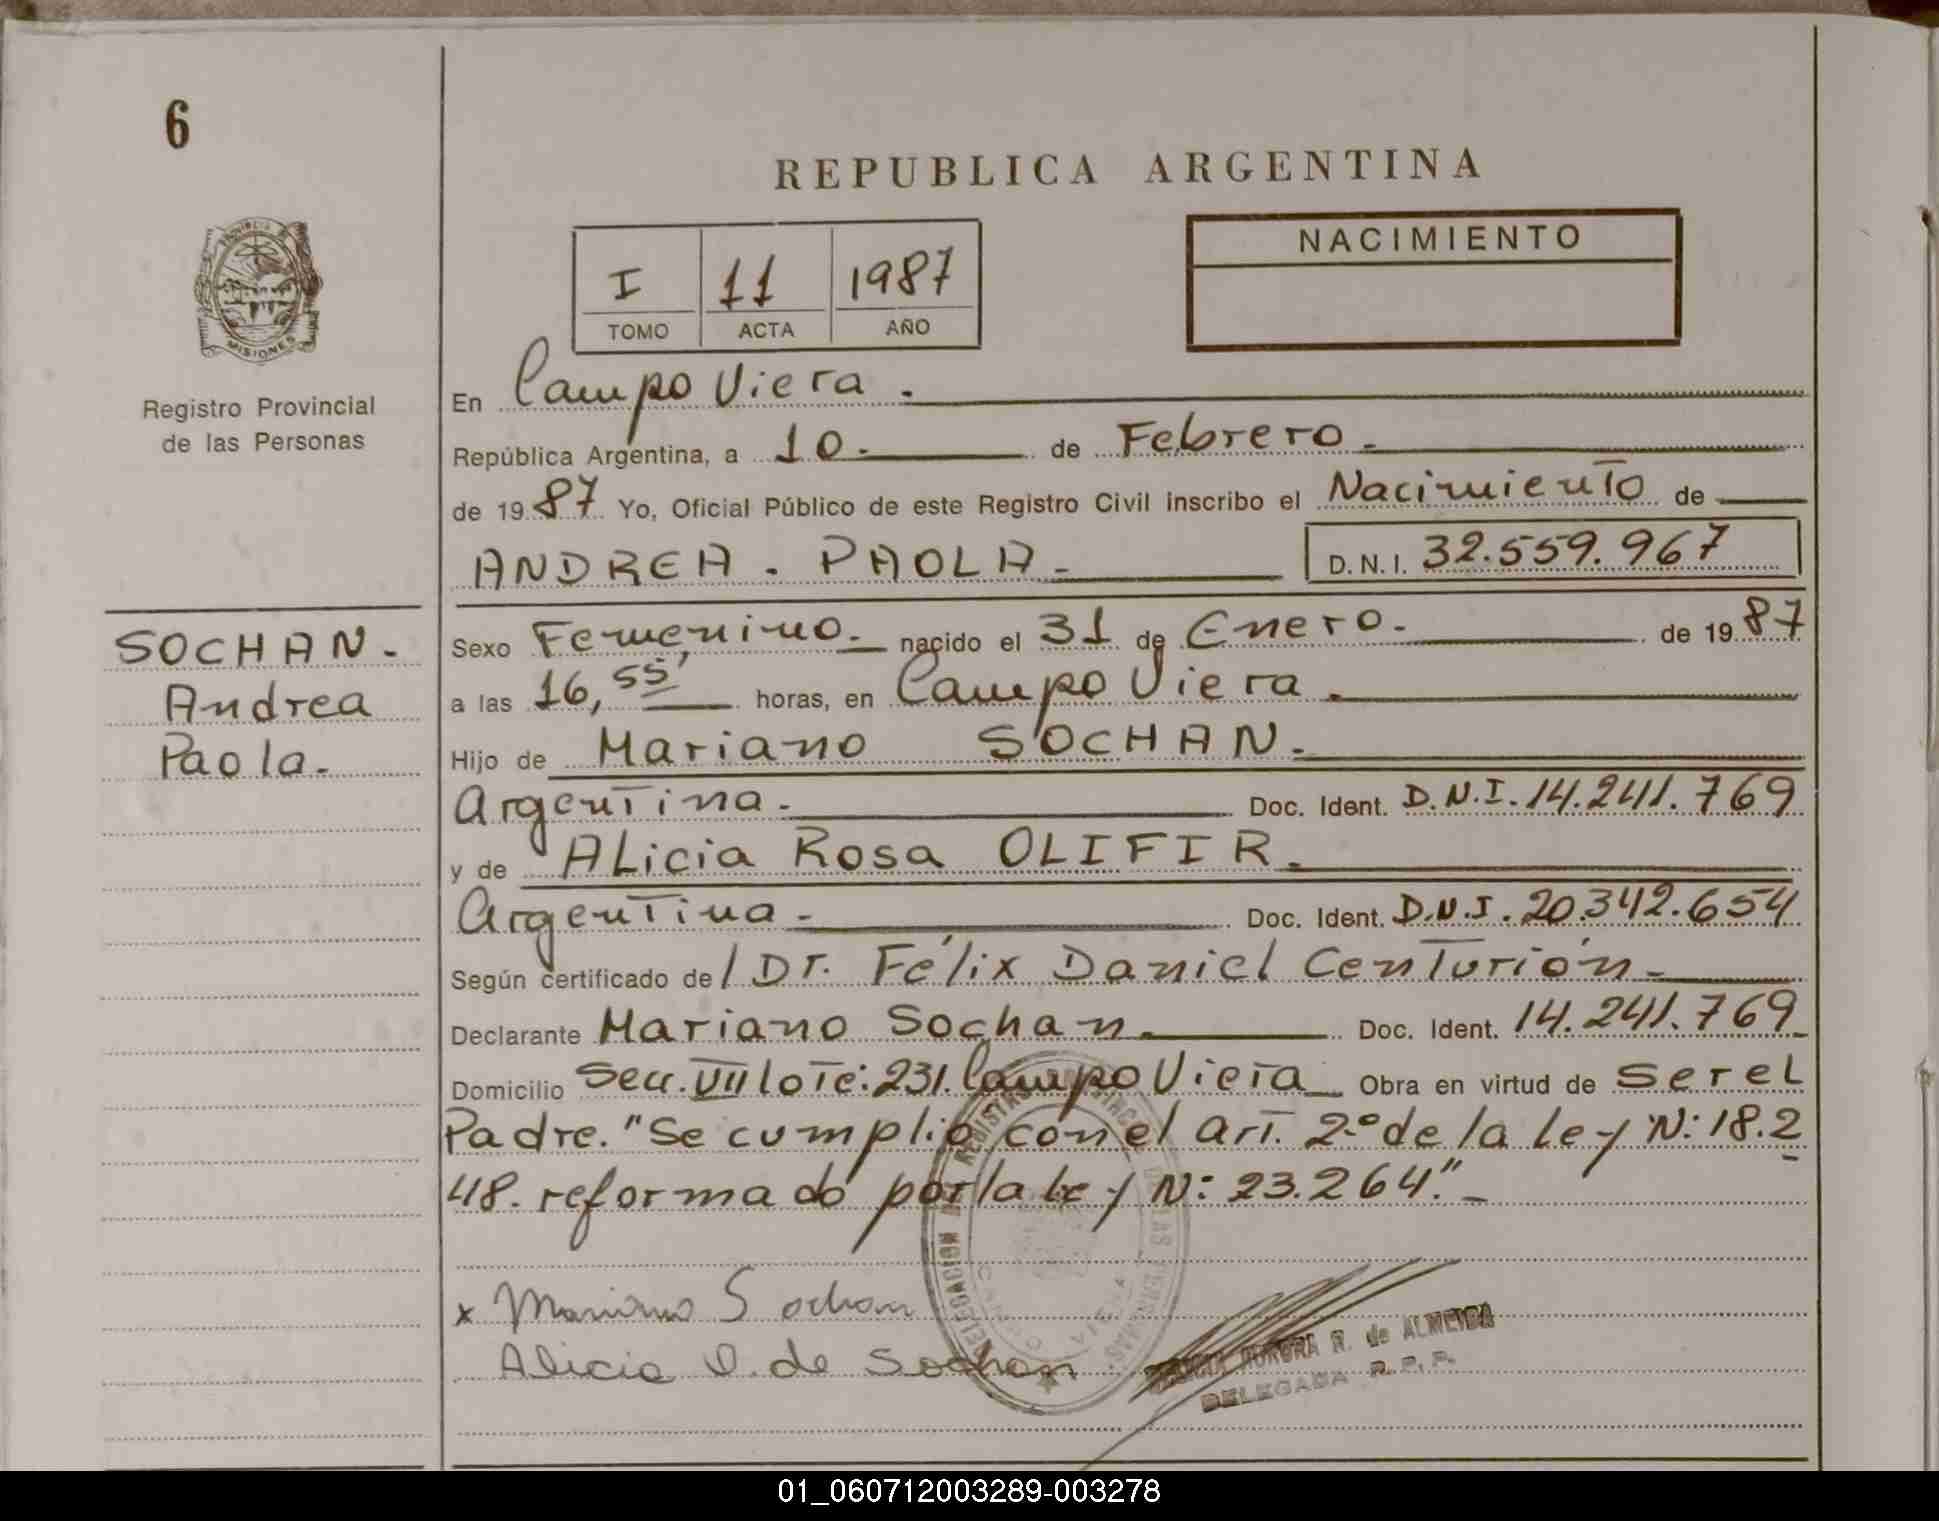 6
REPUBLICA ARGENTINA
PROVINCIA
MISIONES
Registro Provincial
de las Personas
I 11 1987
TOMO ACTA AÑO
NACIMIENTO
En Campo Viera.
República Argentina, a 10. de Febrero.
de 1987 Yo, Oficial Público de este Registro Civil inscribo el Nacimiento de
ANDREA. PAOLA. D.N.I. 32.559.967
SOCHAN.
Andrea
Paola.
Sexo Femenino. nacido el 31 de Enero. de 1987
a las 16,55' horas, en Campo Viera.
Hijo de Mariano SOCHAN.
Argentina. Doc. Ident. D.N.I. 14.241.769
y de ALicia Rosa OLIFIR.
Argentina. Doc. Ident. D.N.I. 20.342.654
Según certificado de / Dr. Félix Daniel Centurión.
Declarante Mariano Sochan. Doc. Ident. 14.241.769
Domicilio Secc. VII lote: 231. Campo Viera Obra en virtud de ser el
Padre. "Se cumplió con el art. 2.º de la ley N: 18.2
48. reformado por la ley N: 23.264."
x Mariano Sochan
Alicia O. de Sochan
DELEGACION REGISTRO PROVINCIAL DE LAS PERSONAS
CAMPO VIERA
AURORA R. de ALMEIDA
DELEGADA R. P. P.
01_060712003289-003278